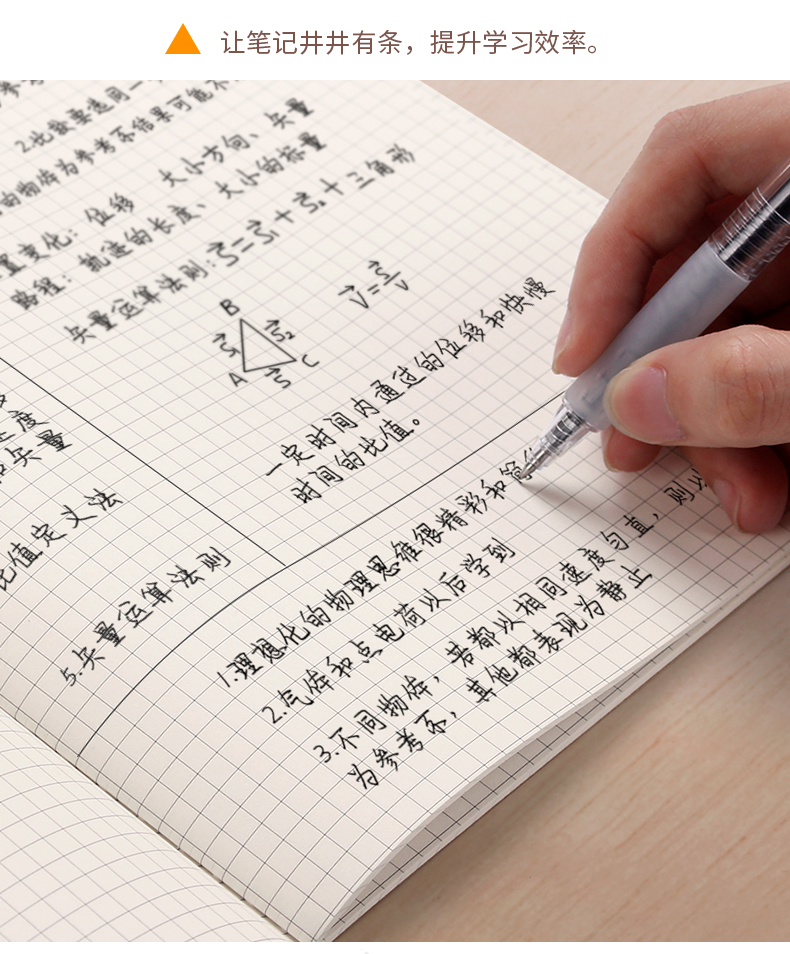 让笔记井井有条，提升学习效率。
2.比较要选同一
的物体为参考系结果可能不
置变化：位移 大小方向、矢量
路程：轨迹的长度、大小的标量
矢量运算法则：S⃗=S⃗₁+S⃗₂+三角形
B
S⃗₁ S⃗₂
A S⃗ C
V⃗=S⃗/V
一定时间内通过的位移和快慢
时间的比值。
度
和矢量
比值定义法
5.矢量运算法则
1.理想化的物理思维很精彩和简
2.气体和点电荷以后学到
3.不同物体，若都以相同速度匀直，则以
为参考系，其他都表现为静止